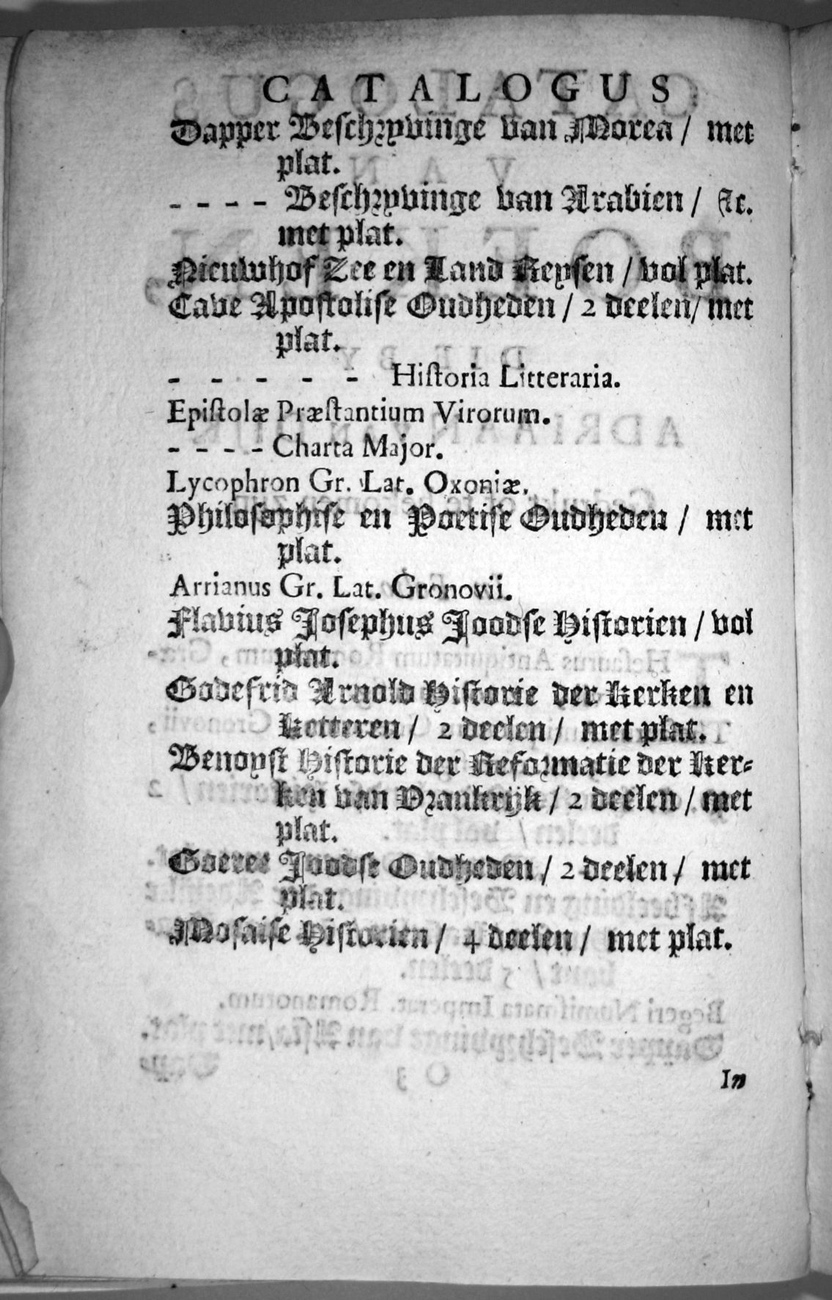 CATALOGUS
Dapper Beschryvinge van Morea / met
plat.
- - - - Beschryvinge van Arabien / &c.
met plat.
Nieuwhof Zee en Land Reysen / vol plat.
Cave Apostolise Oudheden / 2 deelen / met
plat.
- - - - - - Historia Litteraria.
Epistolæ Præstantium Virorum.
- - - - Charta Major.
Lycophron Gr. Lat. Oxoniæ.
Philosophise en Poetise Oudheden / met
plat.
Arrianus Gr. Lat. Gronovii.
Flavius Josephus Joodse Historien / vol
plat.
Godefrid Arnold Historie der Kerken en
Ketteren / 2 deelen / met plat.
Benoyst Historie der Reformatie der Ker-
ken van Vrankrijk / 2 deelen / met
plat.
Goeree Joodse Oudheden / 2 deelen / met
plat.
Mosaise Historien / 4 deelen / met plat.
In